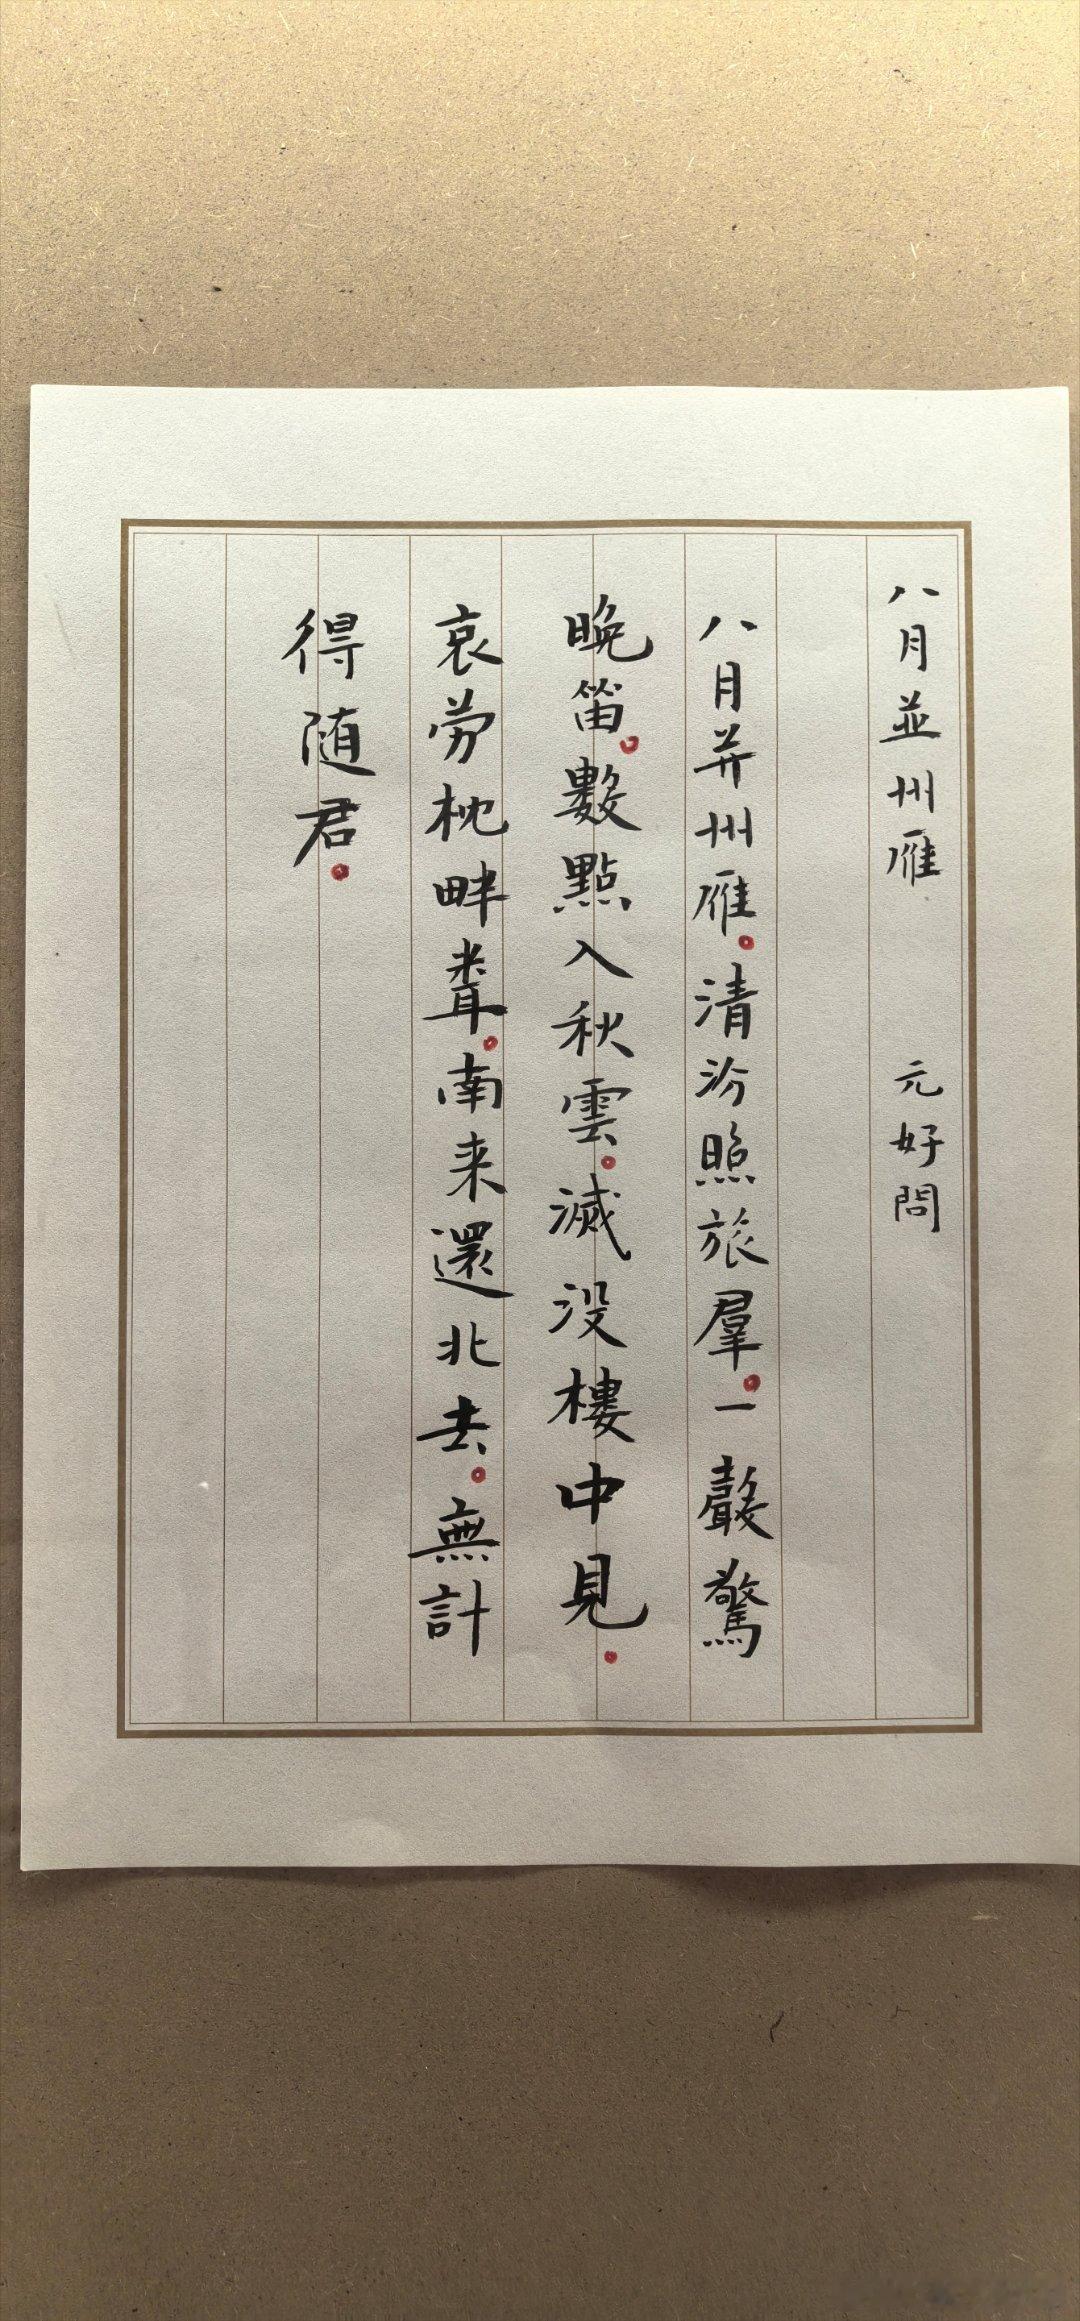 八月並州雁 元好問
八月并州雁。清汾照旅羣。一聲驚
晚笛。數點入秋雲。滅没樓中見。
哀労枕畔聞。南来還北去。無計
得随君。